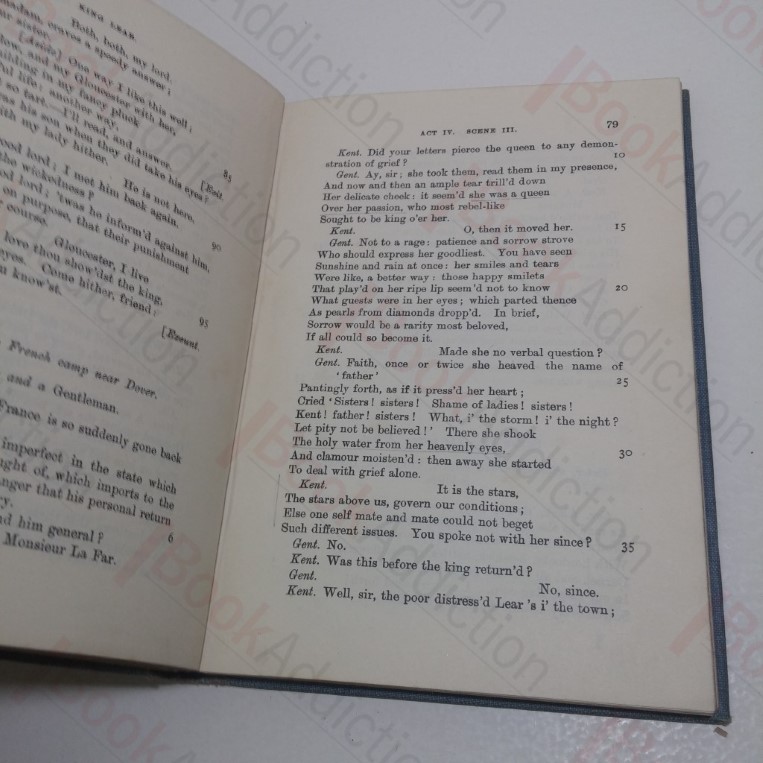 KING LEAR
madam, craves a speedy answer;
Both, both, my lord.
sister.
(Aside) One way I like this well;
and my Gloucester with her,
building in my fancy pluck
life: another way,
so tart.—I'll read, and answer.
was his son when they did take his eyes?
[Exit
85
with my lady hither.
He is not here.
good lord; I met him back again.
the wickedness?
90
good lord; 'twas he inform'd against him,
on purpose, that their punishment
course.
Gloucester, I live
love thou show'dst the king,
eyes. Come hither, friend:
know'st.
95
[Exeunt.
French camp near Dover.
and a Gentleman.
France is so suddenly gone back
imperfect in the state which
of, which imports to the
that his personal return
him general?
6
Monsieur La Far.
ACT IV. SCENE III.
79
Kent. Did your letters pierce the queen to any demon-
stration of grief?
10
Gent. Ay, sir; she took them, read them in my presence,
And now and then an ample tear trill'd down
Her delicate cheek: it seem'd she was a queen
Over her passion, who most rebel-like
Sought to be king o'er her.
Kent. O, then it moved her.
15
Gent. Not to a rage: patience and sorrow strove
Who should express her goodliest. You have seen
Sunshine and rain at once: her smiles and tears
Were like, a better way: those happy smilets
That play'd on her ripe lip seem'd not to know
20
What guests were in her eyes; which parted thence
As pearls from diamonds dropp'd. In brief,
Sorrow would be a rarity most beloved,
If all could so become it.
Kent. Made she no verbal question?
Gent. Faith, once or twice she heaved the name of
'father'
25
Pantingly forth, as if it press'd her heart;
Cried 'Sisters! sisters! Shame of ladies! sisters!
Kent! father! sisters! What, i' the storm! i' the night?
Let pity not be believed!' There she shook
The holy water from her heavenly eyes,
30
And clamour moisten'd: then away she started
To deal with grief alone.
Kent. It is the stars,
The stars above us, govern our conditions;
Else one self mate and mate could not beget
Such different issues. You spoke not with her since?
35
Gent. No.
Kent. Was this before the king return'd?
Gent. No, since.
Kent. Well, sir, the poor distress'd Lear 's i' the town;